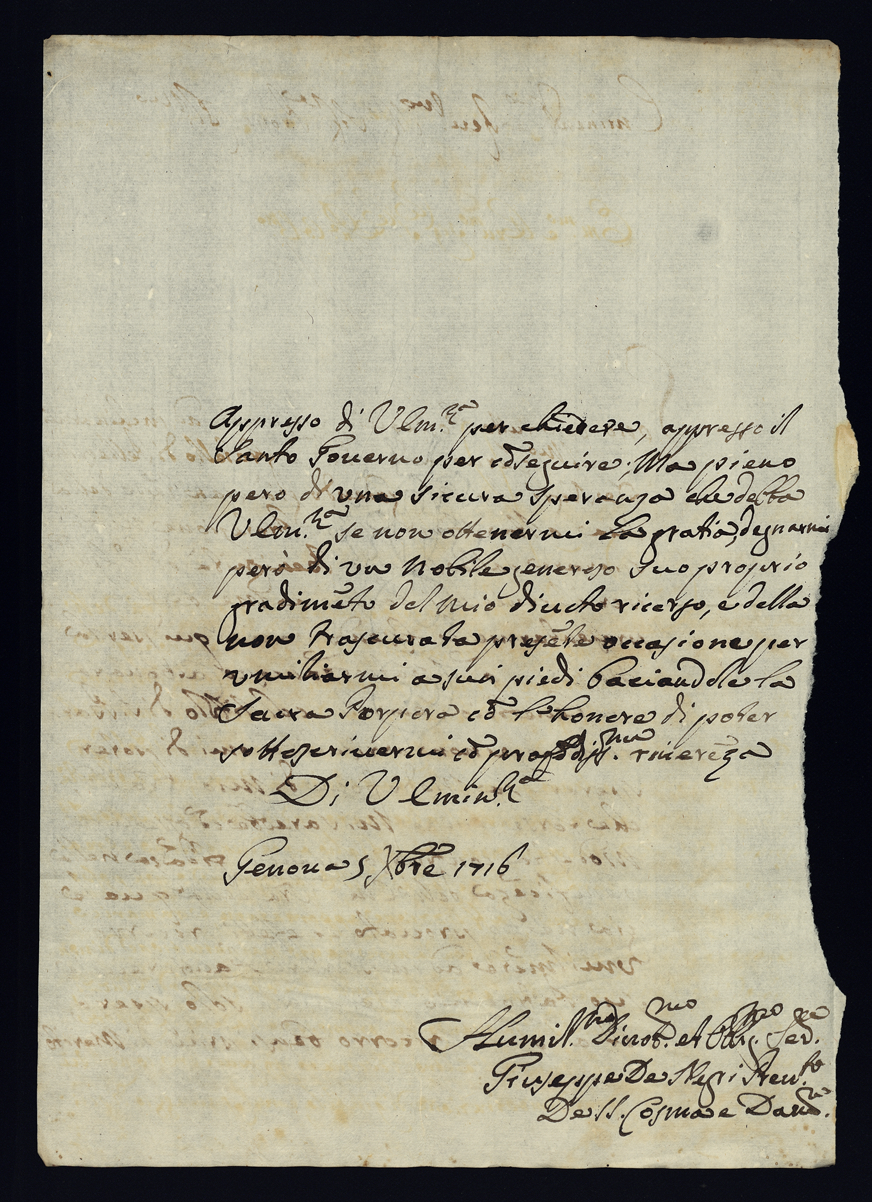 Appresso di V Em.za per chiedere, appresso il
Santo Gouerno per cōseguire; Ma pieno
però di vna sicura speranza che della
V Em.za se non ottenermi la gratia, degnarmi
però di vn nobile generoso suo proprio
gradimēto del mio diuoto ricorso, e della
non trascurata presēte occasione per
vmiliarmi a suoi piedi baciandole la
Sacra Porpora cō l'honore di poter
sottoscriuermi cō profōdiss.ma riuerēza
Di V Emin.za
Genoua 5 Xbre 1716
Humil.mo Diuot.mo et Obbg.mo Ser.e
Giuseppe De Negri
De SS. Cosma e Dam.o